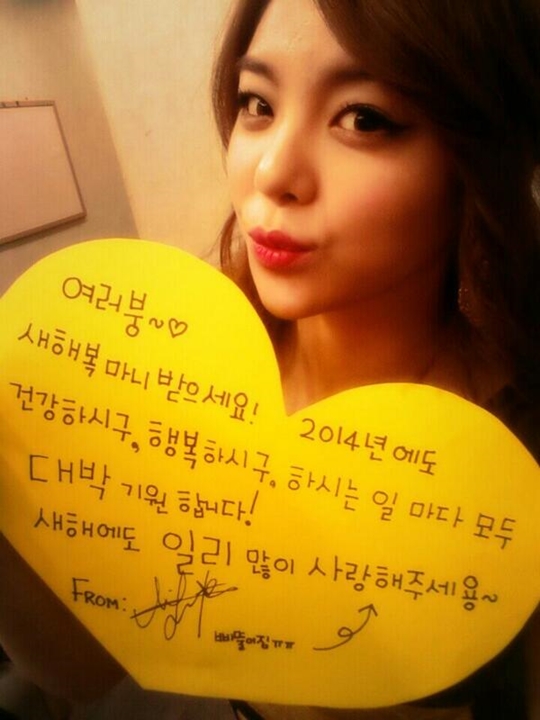 여러붕~♡
새해복 마니 받으세요! 2014년에도
건강하시구, 행복하시구, 하시는 일 마다 모두
대박 기원 합니다!
새해에도 일리 많이 사랑해주세용~
FROM:
삐뚤어짐ㅠㅠ